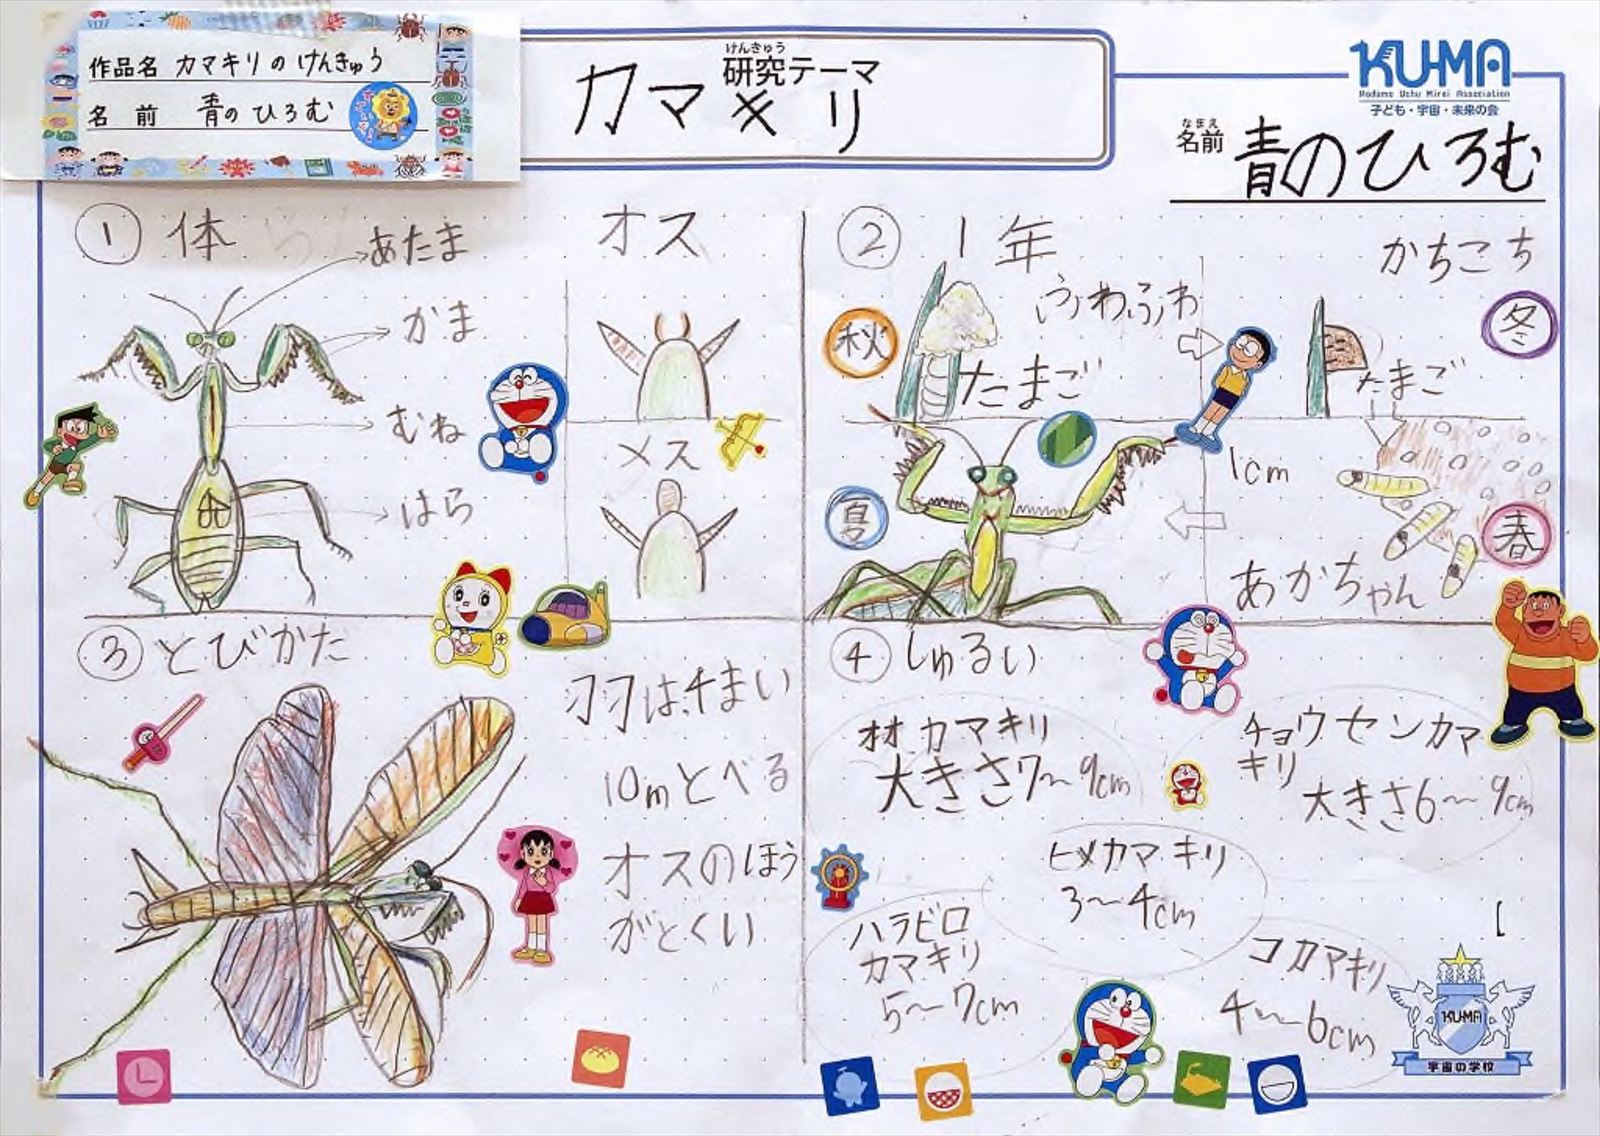 作品名 カマキリのけんきゅう
名前 青のひろむ
けんきゅう
研究テーマ
カマキリ
KU-MA
Kodomo Uchu Mirai Association
子ども・宇宙・未来の会
なまえ
名前 青のひろむ
① 体
あたま
かま
むね
はら
オス
メス
② 1年
秋
ふわふわ
たまご
かちこち
冬
たまご
夏
1cm
春
あかちゃん
③ とびかた
羽は4まい
10mとべる
オスのほう
がとくい
④ しゅるい
オオカマキリ
大きさ7〜9cm
チョウセンカマ
キリ
大きさ6〜9cm
ヒメカマキリ
3〜4cm
ハラビロ
カマキリ
5〜7cm
コカマキリ
4〜6cm
KU-MA
宇宙の学校